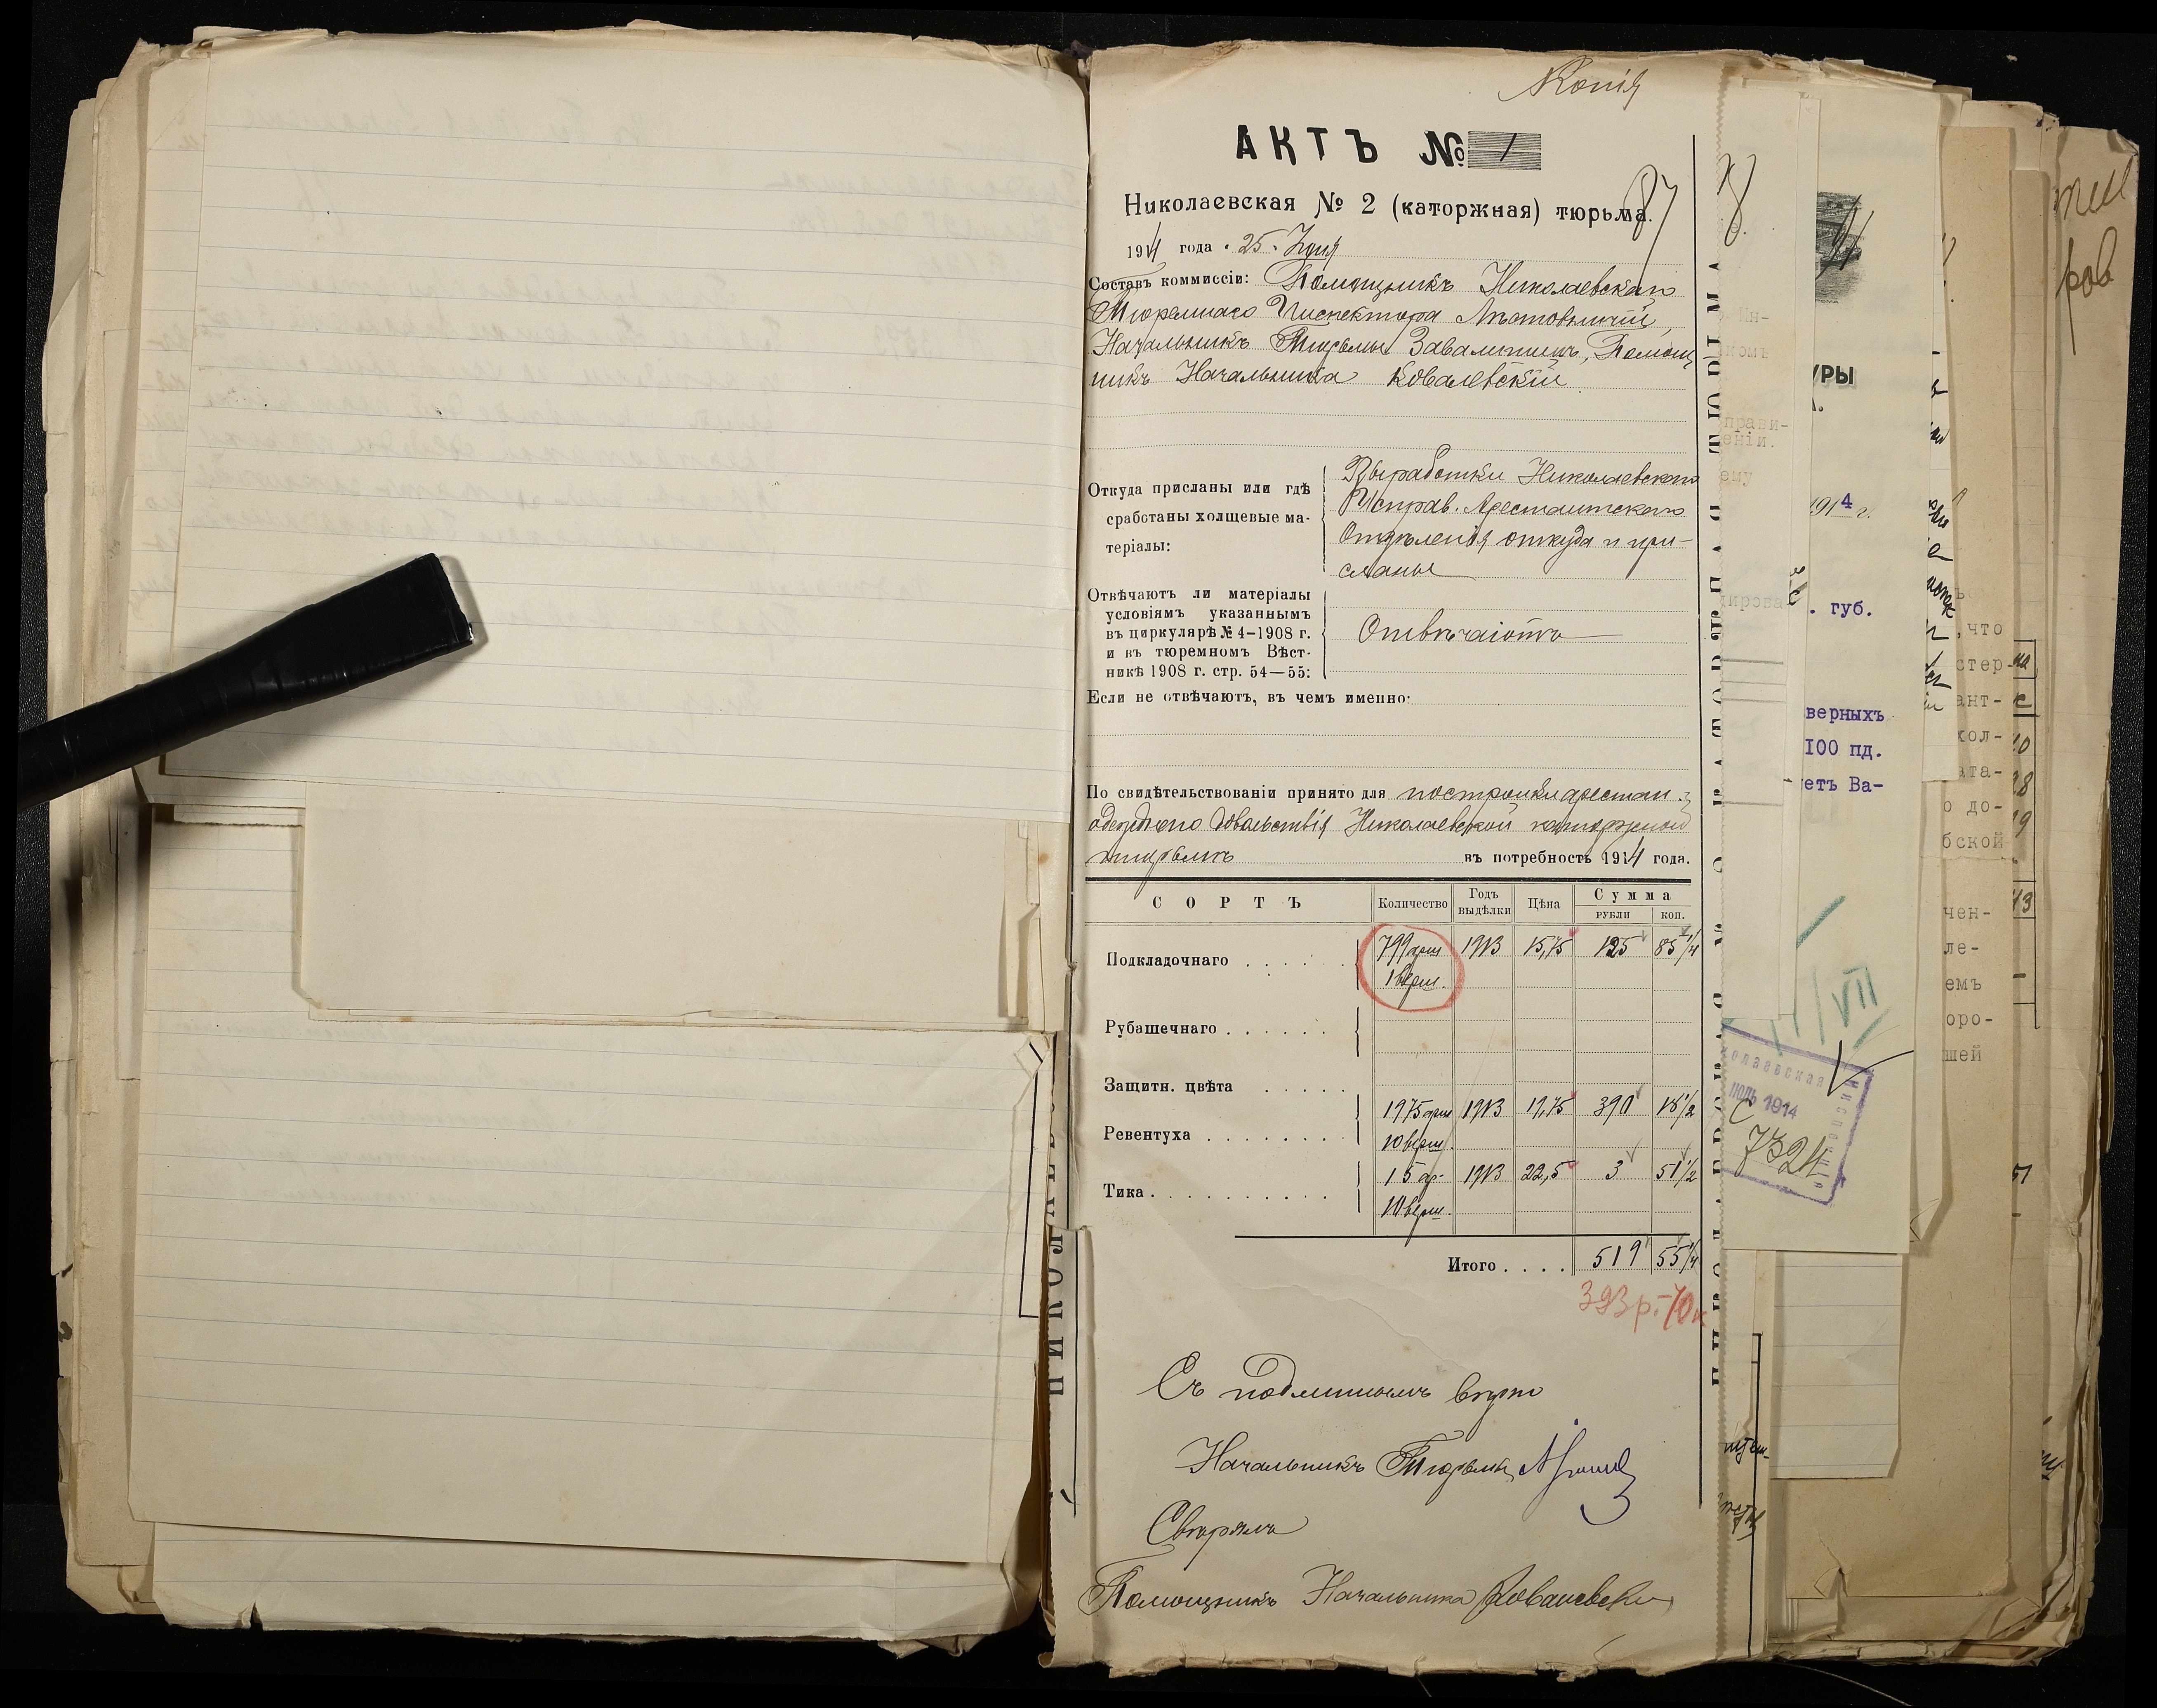 Копія
АКТЪ № 1
87
Николаевская № 2 (каторжная) тюрьма.
1914 года 25 Іюня
Составъ коммиссіи: Помощникъ Николаевскаго
Тюремнаго Инспектора
Начальникъ Тюрьмы Завалишинъ, Помощ
никъ Начальника Ковалевскій
Откуда присланы или гдѣ
сработаны холщевые ма-
теріалы:
Выработки Николаевскаго
Исправ. Арестантскаго
Отдѣленія откуда и при-
сланы
Отвѣчаютъ ли матеріалы
условіямъ указаннымъ
въ циркулярѣ № 4-1908 г.
и въ тюремномъ Вѣст-
никѣ 1908 г. стр. 54—55:
Отвѣчаютъ
Если не отвѣчаютъ, въ чемъ именно:
По свидѣтельствованіи принято для постройки арестан.
одежднаго довольствія Николаевской каторжной
тюрьмѣ въ потребность 1914 года.
СОРТЪ Количество Годъ выдѣлки Цѣна Сумма
рубли коп.
Подкладочнаго 799 арш 1913 15,75 125 85 1/4
1 верш.
Рубашечнаго
Защитн. цвѣта
1975 арш 1913 19,75 390 18 1/2
Ревентуха 10 верш.
15 ар. 1913 22,5 3 51 1/2
Тика 10 верш.
Итого 519 55 1/4
393 р. 70 к
Съ подлиннымъ вѣрно
Начальникъ Тюрьмы
Свѣрялъ
Помощникъ Начальника Ковалевскій
УРЫ
1914 г.
. губ.
верныхъ
100 пд.
етъ Ва-
11/VII
1914
7324
,что
стер-
ант-
хол-
ата-
о до-
бской
чен-
ле-
емъ
оро-
шей
ров